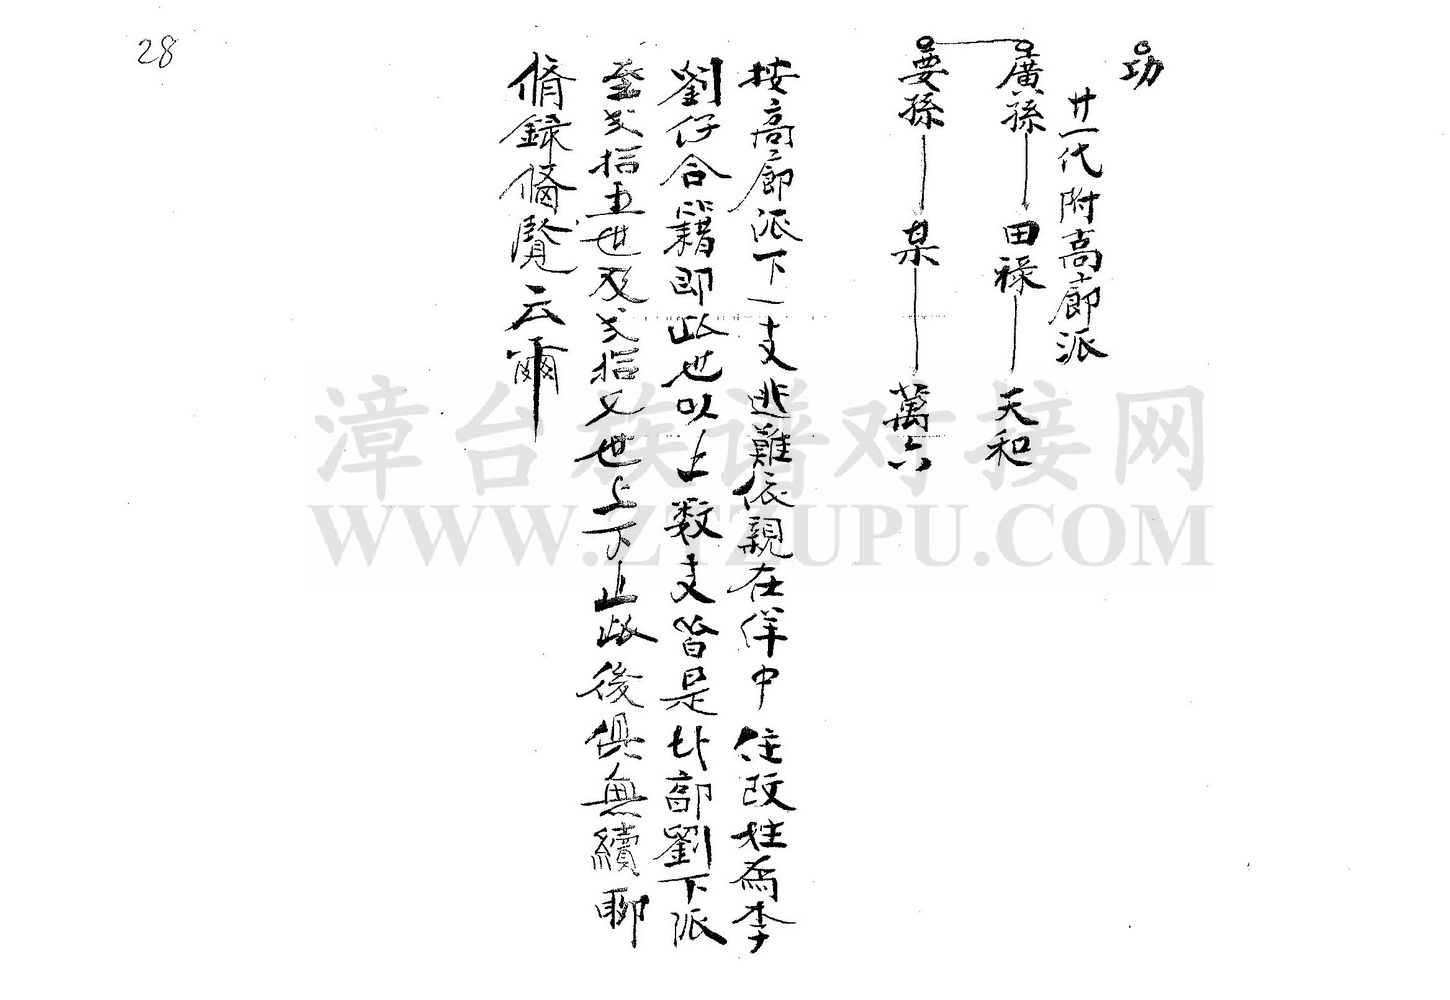 28
功
廿一代附高廍派
廣孫 田祿 天和
要孫 某 萬六
按高廍派下一支逃難依親在佯中住改姓為李
劉仔合籍即此也以上数支皆是廍劉下派
至弍拾五世及弍拾七世上下止此後俱無續聊
脩録備覽云爾
漳台族谱对接网
WWW.ZTZUPU.COM